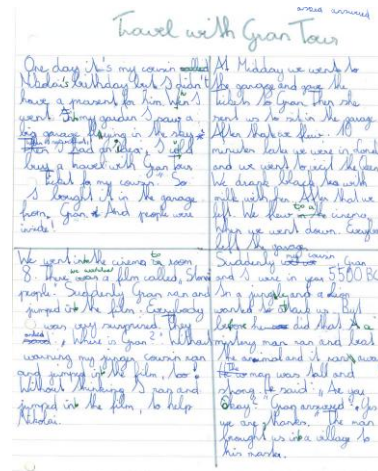 asked answered
Travel with Gran Tour
One day it's my cousin called
Nikolai's birthday but I didn't
have a present for him. When I
went in my garden I saw a
big garage flying in the sky.
Then I had an idea, I will
buy a travel with Gran Tour
ticket for my cousin. So
I bought it in the garage
from Gran. And people were
inside!
At Midday we went to
the garage and gave the
tickets to Gran then she
sent us to sit in the garage
After that we flew. 10
minutes later we were in
and we went to
We drank black tea with
milk with her. After that we
left. We flew to a cinema
when we went down. Everybody
left the garage.
We went into the cinema to room
8. There we watched a film called, Stone
people. Suddenly Gran ran and
jumped in the film. Everybody
was very surprised. They
asked, Where is Gran? Without
warning my cousin ran
and jumped in the film, too!
Without thinking I ran and
jumped in the film, to help
Nikolai.
Suddenly my cousin Gran
and I were in year 5500 BC
In a jungle and a lion
wanted to us. But
before he did that a
mystery man ran and beat
the animal and it ran away.
The man was tall and
strong. He said, "Are you
okay?" Gran answered, "Yes
we are, thanks." The man
brought us into a village to
his master.